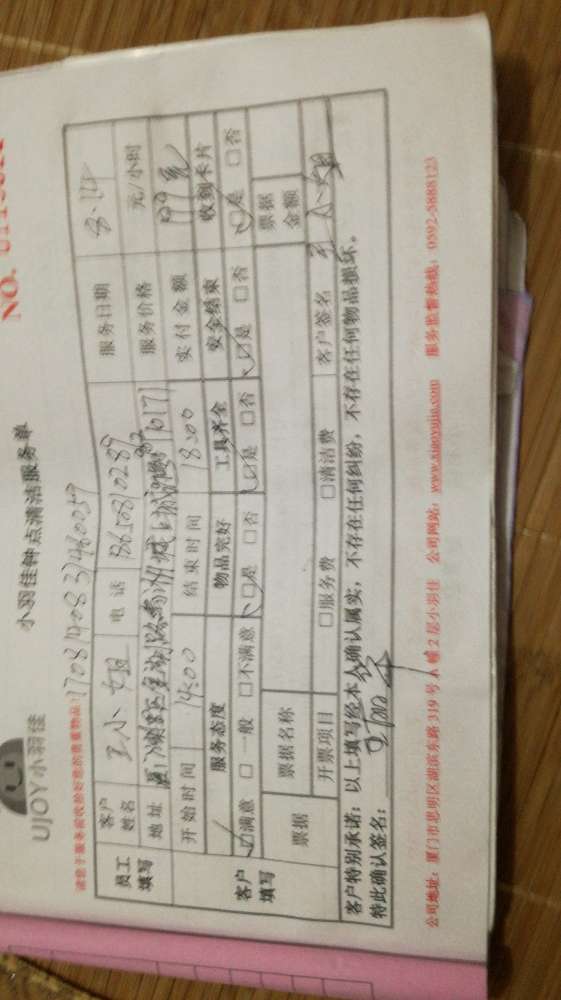 UJOY小羽佳
小羽佳钟点清洁服务单
NO.
请您于服务前收拾好您的贵重物品!
员工填写
客户姓名 王小姐 电话 服务日期
地址 服务价格 元/小时
开始时间 14:00 结束时间 18:00 实付金额
客户填写
服务态度 物品完好 工具齐全 安全结束 收到卡片
☑满意 □一般 □不满意 ☑是 □否 ☑是 □否 ☑是 □否 ☑是 □否
票据 票据名称 票据金额
开票项目 □服务费 □清洁费 客户签名 王小姐
客户特别承诺:以上填写经本人确认属实,不存在任何纠纷,不存在任何物品损坏。
特此确认签名:
公司地址:厦门市思明区湖滨东路319号A幢2层小羽佳 公司网站:www.xiaoyujia.com 服务监督热线:0592-5888123